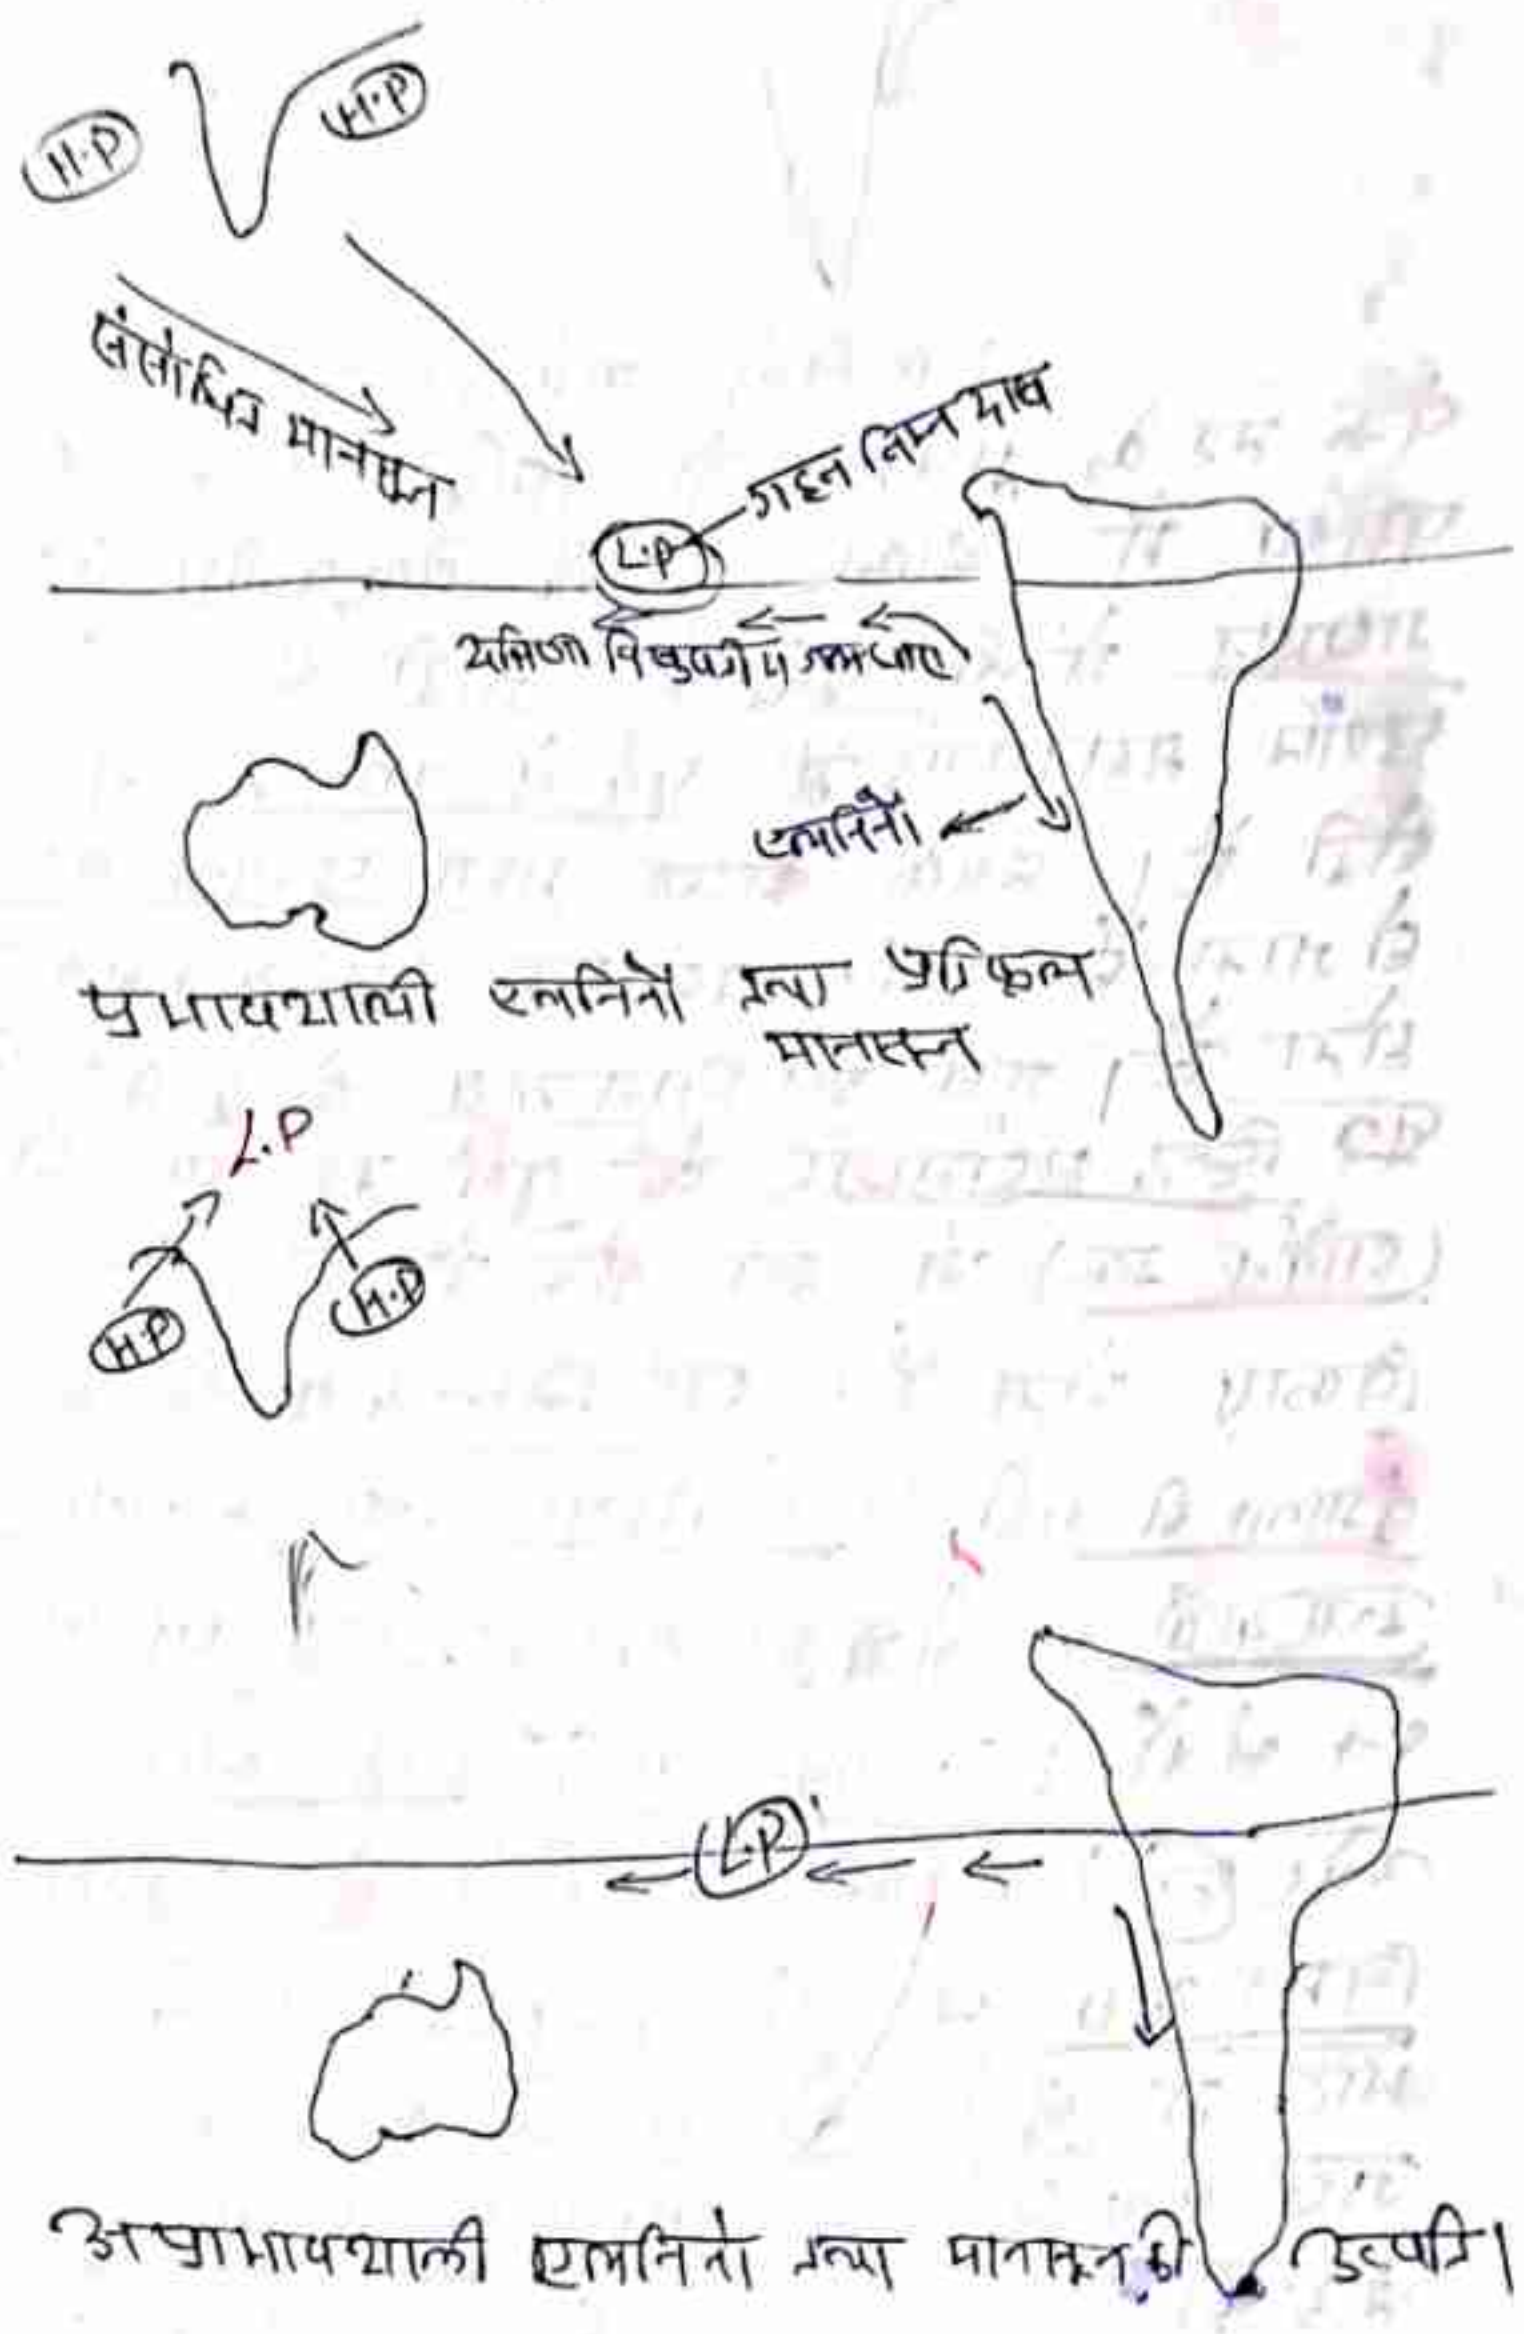 H.P
H.P
संसोधित मानसून
गहन निम्न दाब
L.P
दक्षिणी विषुवतीय जलधारा
एलनिनो
प्रभावशाली एलनिनो तथा प्रतिकूल
मानसून
L.P
H.P
H.P
L.P
अप्रभावशाली एलनिनो तथा मानसून की उत्पत्ति।